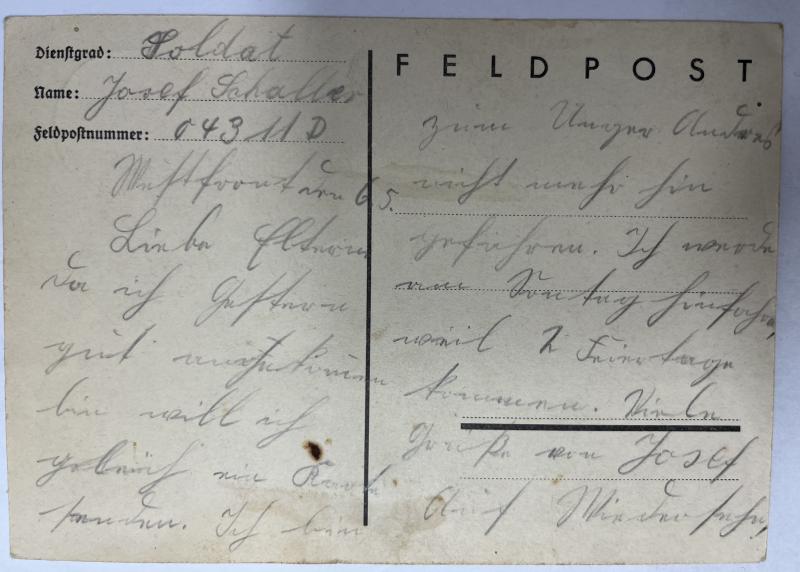 Dienstgrad: Soldat
Name: Josef Schaller
Feldpostnummer: 04311 D
Westfront den 6.5.
Liebe Eltern
da ich Gestern
gut angekommen
bin will ich
gleich ein Karte
senden. Ich bin
FELDPOST
zum Unger Andres
nicht mehr hin
gefahren. Ich werde
am Sontag hinfahren,
weil 2 Feiertage
kommen. Viele
Grüße von Josef
Auf Wiedersehn,